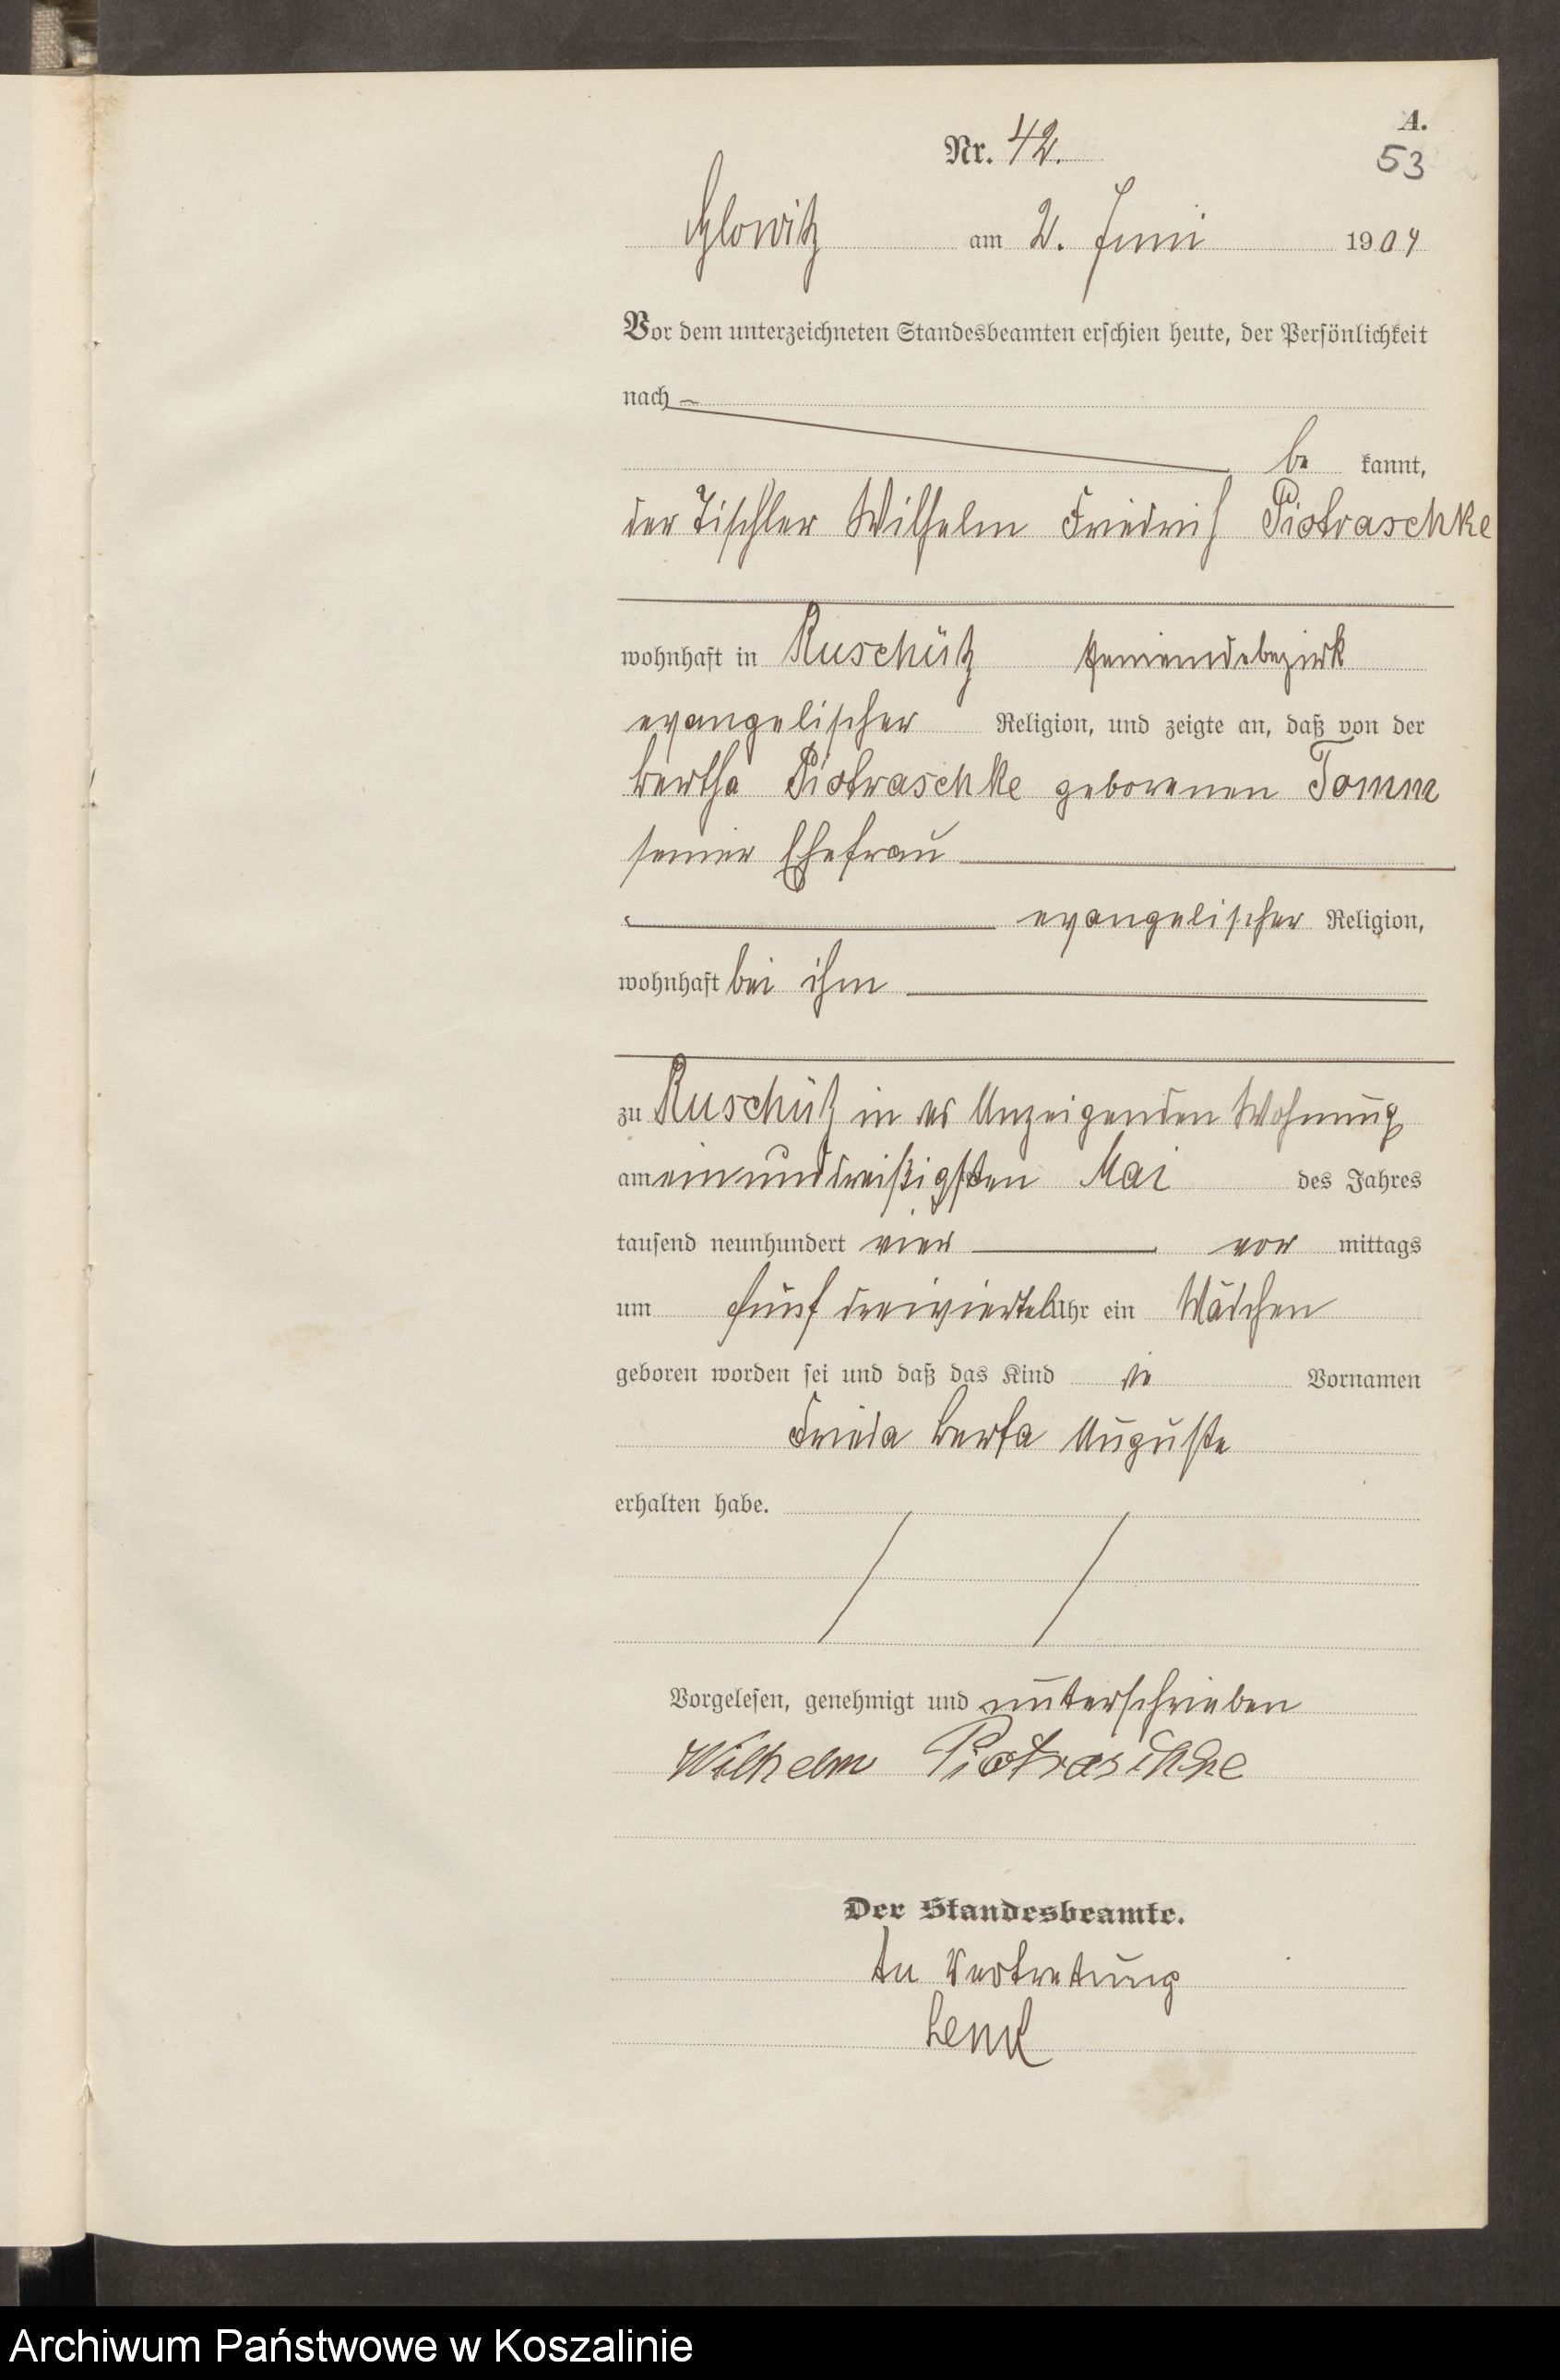 A.
Nr. 42.
53
Glowitz am 2. Juni 1904
Vor dem unterzeichneten Standesbeamten erschien heute, der Persönlichkeit
nach
be kannt,
der Tischler Wilhelm Friedrich Piotraschke
wohnhaft in Ruschütz Gemeindebezirk
evangelischer Religion, und zeigte an, daß von der
Bertha Piotraschke geborenen Tomm
seiner Ehefrau
evangelischer Religion,
wohnhaft bei ihm
zu Ruschütz in des Anzeigenden Wohnung
am einunddreißigsten Mai des Jahres
tausend neunhundert vier vor mittags
um fünf dreiviertel Uhr ein Mädchen
geboren worden sei und daß das Kind die Vornamen
Frieda Berta Auguste
erhalten habe.
Vorgelesen, genehmigt und unterschrieben
Wilhelm Piotraschke
Der Standesbeamte.
In Vertretung
Archiwum Państwowe w Koszalinie